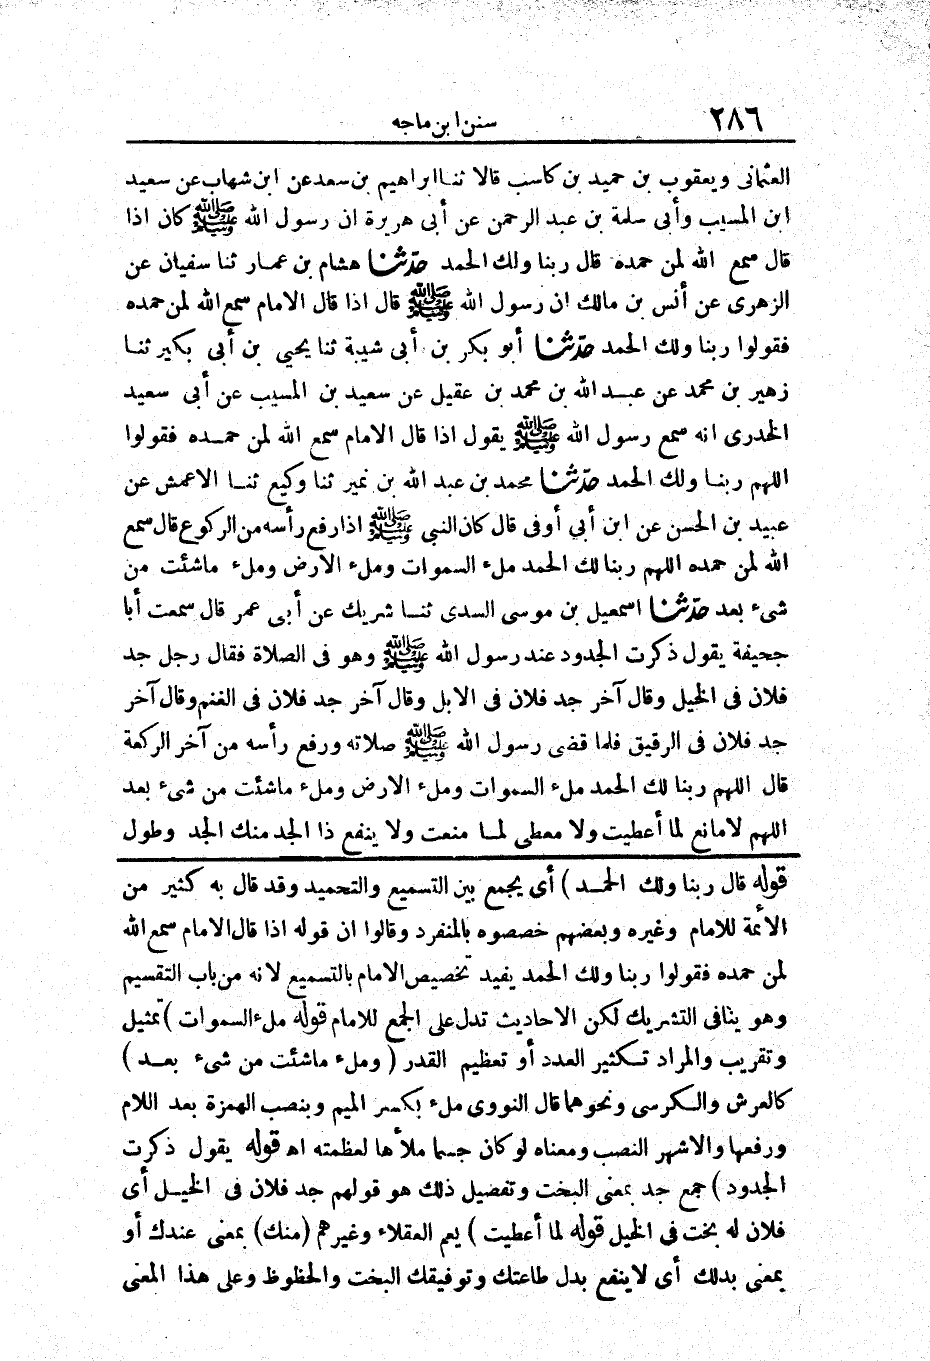 ٢٨٦
سنن ابن ماجه
العثمانى ويعقوب بن حميد بن كاسب قالا ثنا ابراهيم بن سعد عن ابن شهاب عن سعيد
ابن المسيب وأبى سلمة بن عبد الرحمن عن أبى هريرة ان رسول الله ﷺ كان اذا
قال سمع الله لمن حمده قال ربنا ولك الحمد حدّثنا هشام بن عمار ثنا سفيان عن
الزهرى عن أنس بن مالك ان رسول الله ﷺ قال اذا قال الامام سمع الله لمن حمده
فقولوا ربنا ولك الحمد حدّثنا أبو بكر بن أبى شيبة ثنا يحيى بن أبى بكير ثنا
زهير بن محمد عن عبد الله بن محمد بن عقيل عن سعيد بن المسيب عن أبى سعيد
الخدرى انه سمع رسول الله ﷺ يقول اذا قال الامام سمع الله لمن حمده فقولوا
اللهم ربنا ولك الحمد حدّثنا محمد بن عبد الله بن نمير ثنا وكيع ثنا الاعمش عن
عبيد بن الحسن عن ابن أبي أوفى قال كان النبى ﷺ اذا رفع رأسه من الركوع قال سمع
الله لمن حمده اللهم ربنا لك الحمد ملء السموات وملء الارض وملء ماشئت من
شىء بعد حدّثنا اسمعيل بن موسى السدى ثنا شريك عن أبى عمر قال سمعت أبا
جحيفة يقول ذكرت الجدود عند رسول الله ﷺ وهو فى الصلاة فقال رجل جد
فلان فى الخيل وقال آخر جد فلان فى الابل وقال آخر جد فلان فى الغنم وقال آخر
جد فلان فى الرقيق فلما قضى رسول الله ﷺ صلاته ورفع رأسه من آخر الركعة
قال اللهم ربنا لك الحمد ملء السموات وملء الارض وملء ماشئت من شىء بعد
اللهم لا مانع لما أعطيت ولا معطى لما منعت ولا ينفع ذا الجد منك الجد وطول
قوله قال ربنا ولك الحمد ) أى يجمع بين التسميع والتحميد وقد قال به كثير من
الأئمة للامام وغيره وبعضهم خصصوه بالمنفرد وقالوا ان قوله اذا قال الامام سمع الله
لمن حمده فقولوا ربنا ولك الحمد يفيد تخصيص الامام بالتسميع لانه من باب التقسيم
وهو ينافى التشريك لكن الاحاديث تدل على الجمع للامام قوله ملء السموات ) تمثيل
وتقريب والمراد تكثير العدد أو تعظيم القدر ( وملء ماشئت من شىء بعد )
كالعرش والكرسى ونحوهما قال النووى ملء بكسر الميم وبنصب الهمزة بعد اللام
ورفعها والاشهر النصب ومعناه لو كان جسما ملأها لعظمته اه قوله يقول ذكرت
الجدود ) جمع جد بمعنى البخت وتفضيل ذلك هو قولهم جد فلان فى الخيل أى
فلان له بخت فى الخيل قوله لما أعطيت ) يعم العقلاء وغيرهم (منك) بمعنى عندك أو
بمعنى بدلك أى لا ينفع بدل طاعتك وتوفيقك البخت والحظوظ وعلى هذا المعنى